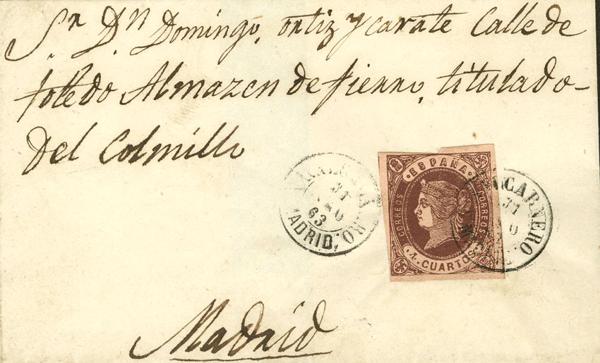 Sr. Dn Domingo, ortiz y carate Calle de
Toledo Almazen de fierro, titulado
Del Colmillo
ESPAÑA
CORREOS
CORREOS
4 CUARTOS
31
63
MADRID
CARNERO
31
Madrid